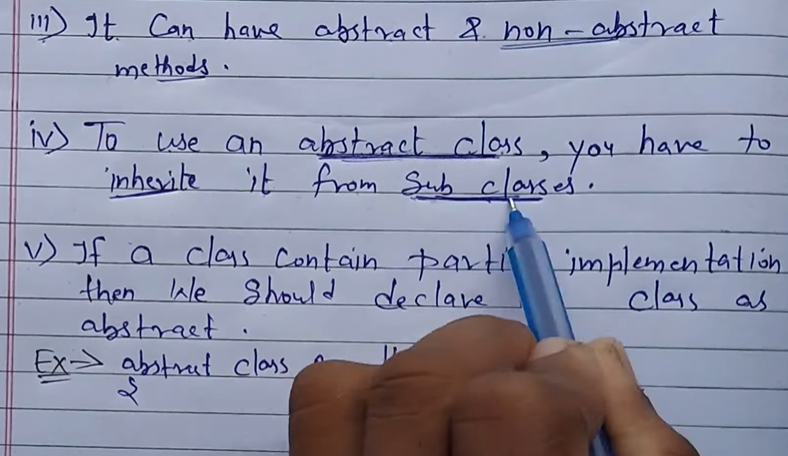 iii) It Can have abstract & non-abstract
methods.
iv) To use an abstract class, you have to
inherite it from Sub classes.
v) If a class contain implementation
then we Should declare class as
abstract.
Ex→ abstract class
{